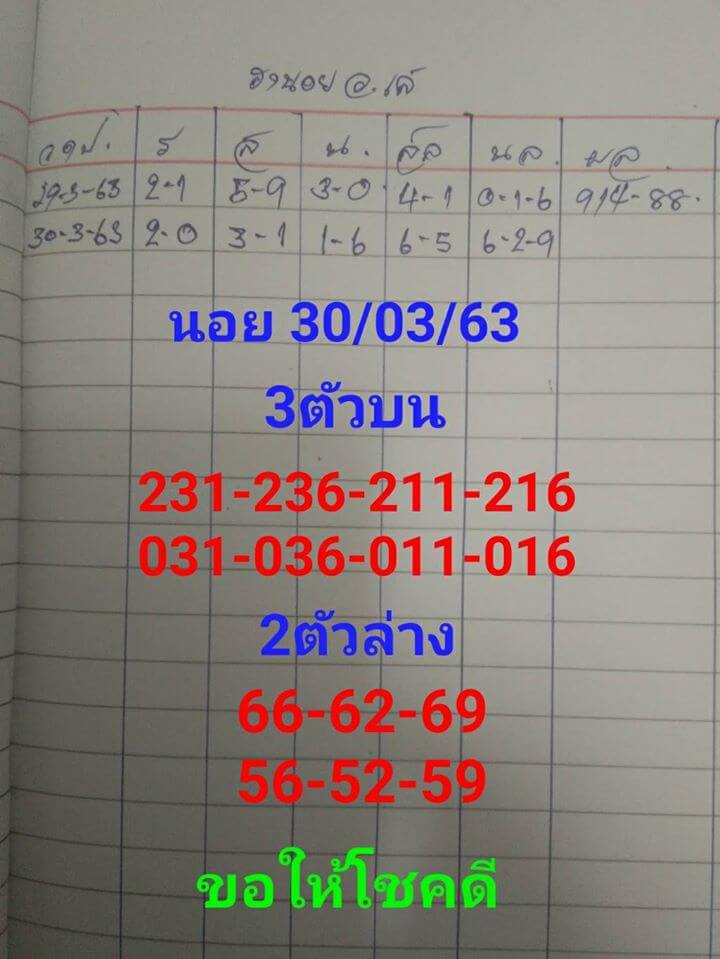 ฮานอย อ.เล้
ว ด ป. ร ส น. ส่ล น ล. ผล.
29-3-63 2-1 8-9 3-0. 4-1 0-1-6 914-88.
30-3-63 2-0 3-1 1-6 6-5 6-2-9
นอย 30/03/63
3ตัวบน
231-236-211-216
031-036-011-016
2ตัวล่าง
66-62-69
56-52-59
ขอให้โชคดี